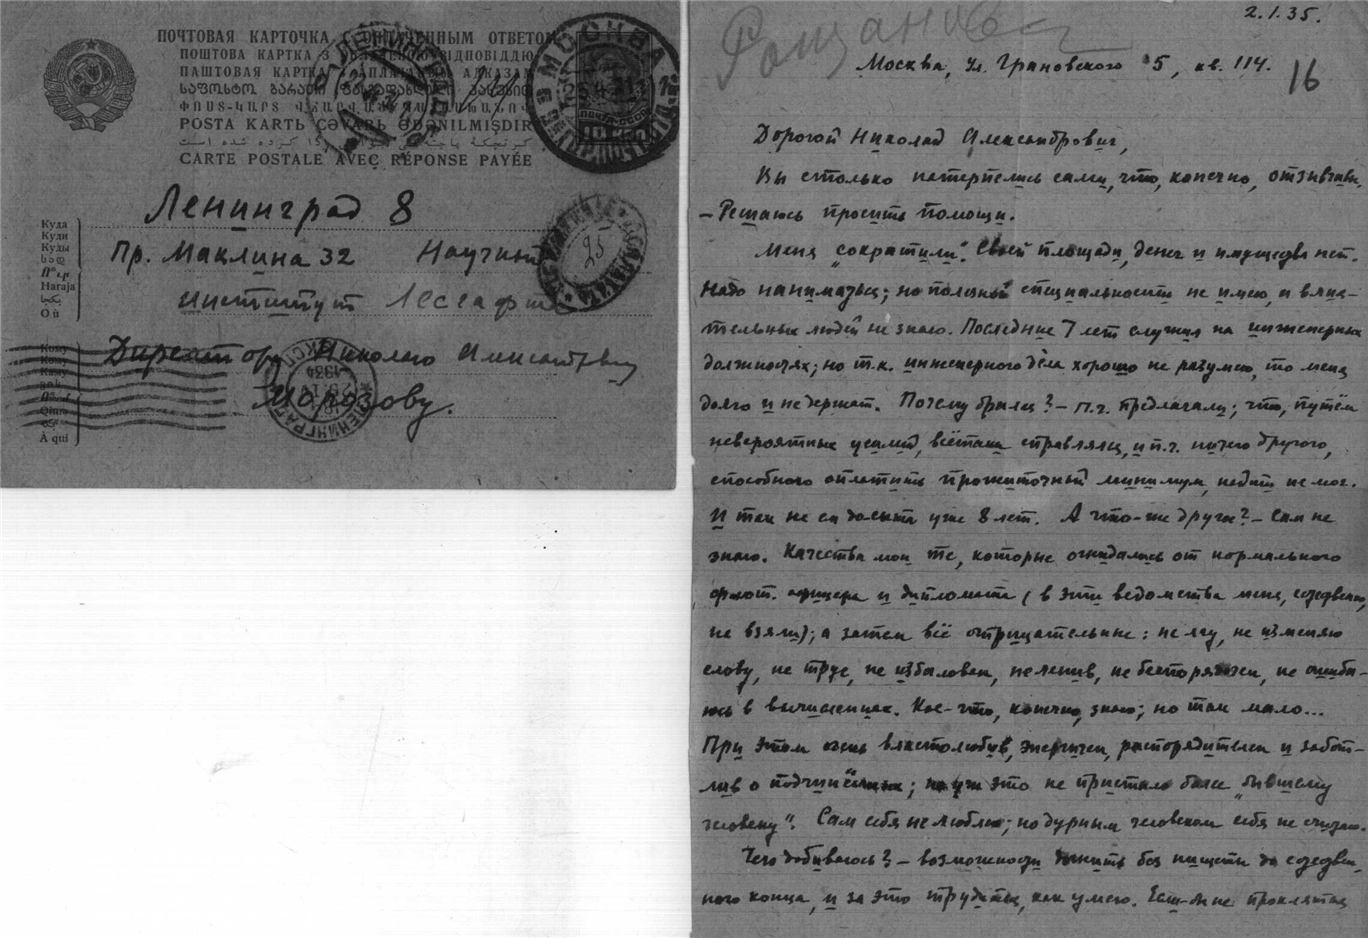 ПОЧТОВАЯ КАРТОЧКА С ОПЛАЧЕННЫМ ОТВЕТОМ
ПОШТОВА КАРТКА З ВІДПОВІДДЮ
ПАШТОВАЯ КАРТКА АДКАЗАМ
POSTA KARTЬ ÇƏVABЬ ƏDƏNILMIŞDIR
CARTE POSTALE AVEC RÉPONSE PAYÉE
МОСКВА
Ленинград 8
Куда
Куди
Куды
Пр. Маклина 32 Научный
Haraja
институт Лесгафта
Où
Кому
Директору Николаю Александровичу
Морозову.
À qui
ЛЕНИНГРАД
1934
25
2.1.35.
Москва, ул. Грановского 5, кв. 114.
16
Дорогой Николай Александрович,
Вы столько натерпелись сами, что, конечно, отзывчивы,
– Решаюсь просить помощи.
Меня „сократили". Своей площади, денег и имущества нет.
Надо наниматься; но полезной специальности не имею, и влия-
тельных людей не знаю. Последние 7 лет служил на инженерных
должностях; но т.к. инженерного дела хорошо не разумею, то меня
долго и не держат. Почему брался? – п.ч. предлагали; что, путём
невероятных усилий, всётаки справлялся, и п.ч. ничего другого,
способного оплатить прожиточный минимум, найти не мог.
И так не ел досыта уже 8 лет. А что-же другое? – Сам не
знаю. Качества мои те, которые ожидались от нормального
флот. офицера и дипломата (в эти ведомства меня,
не взяли); а затем всё отрицательные: не лгу, не изменяю
слову, не трус, не избалован, не ленив, не беспорядочен, не ошиба-
юсь в вычислениях. Кое-что, конечно, знаю; но так мало...
При этом очень властолюбив, энергичен, распорядителен и забот-
лив о подчинённых; но уж это не пристало более „бывшему
человеку". Сам себя не люблю; но дурным человеком себя не считаю.
Чего добиваюсь? – возможности дожить без нищеты до
ного конца, и за это трудиться, как умею. Если-бы не проклятая